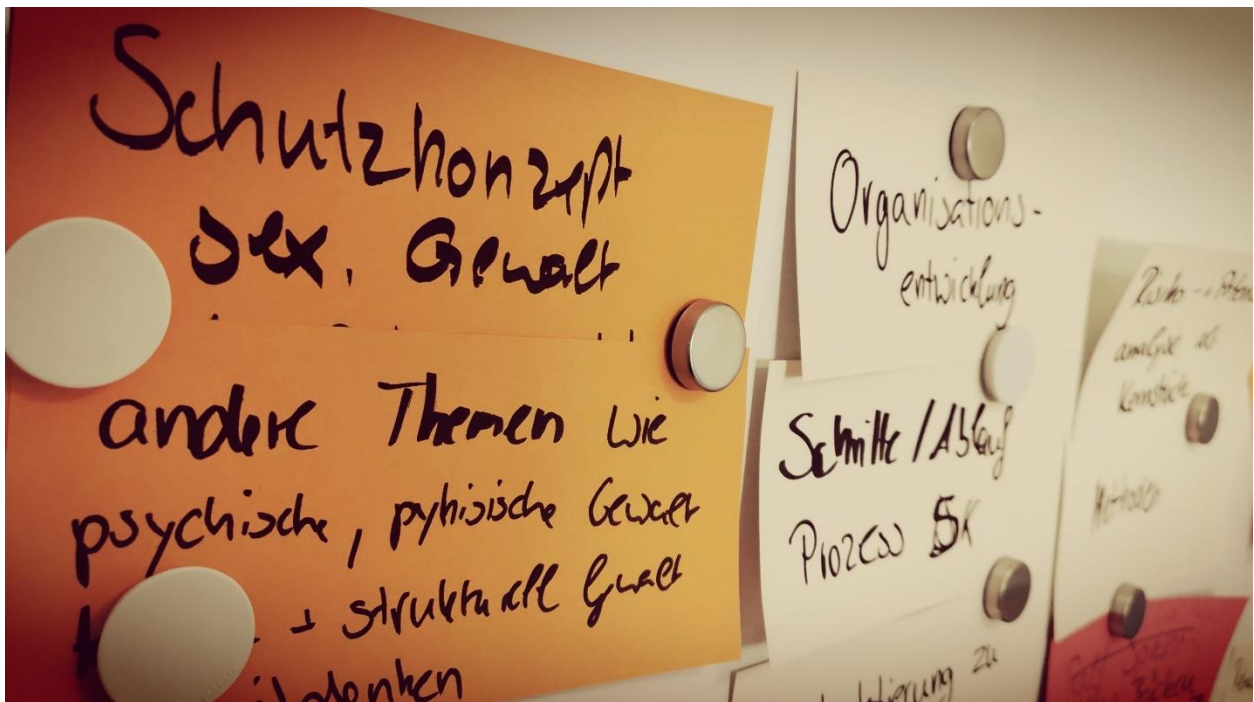 Schutzkonzept
sex. Gewalt
andere Themen wie
psychische, pyhisische Gewalt
+ strukturelle Gewalt
denken
Organisations-
entwicklung
Schritte / Ablauf
Prozess SK
zu
Risiko -
analyse als
Kernstück
Methoden